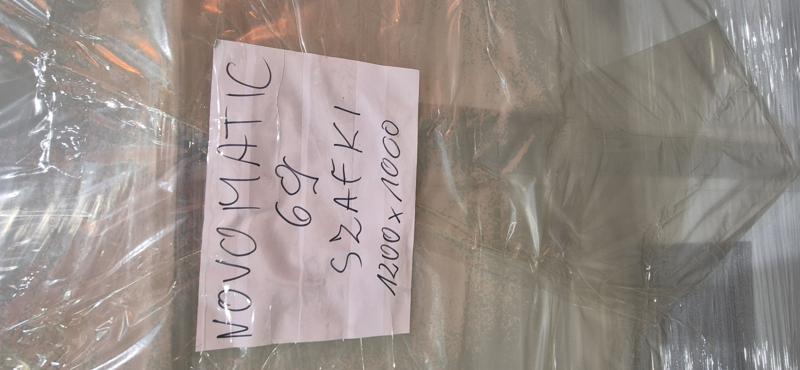 NOVOMATIC
69
SZAFKI
1200x1000